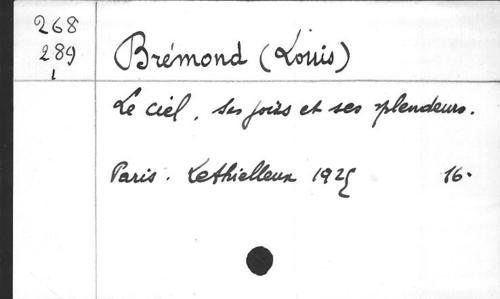 268
289
1
Brémond (Louis)
Le ciel, ses joies et ses splendeurs.
Paris. Lethielleux 1925 16.